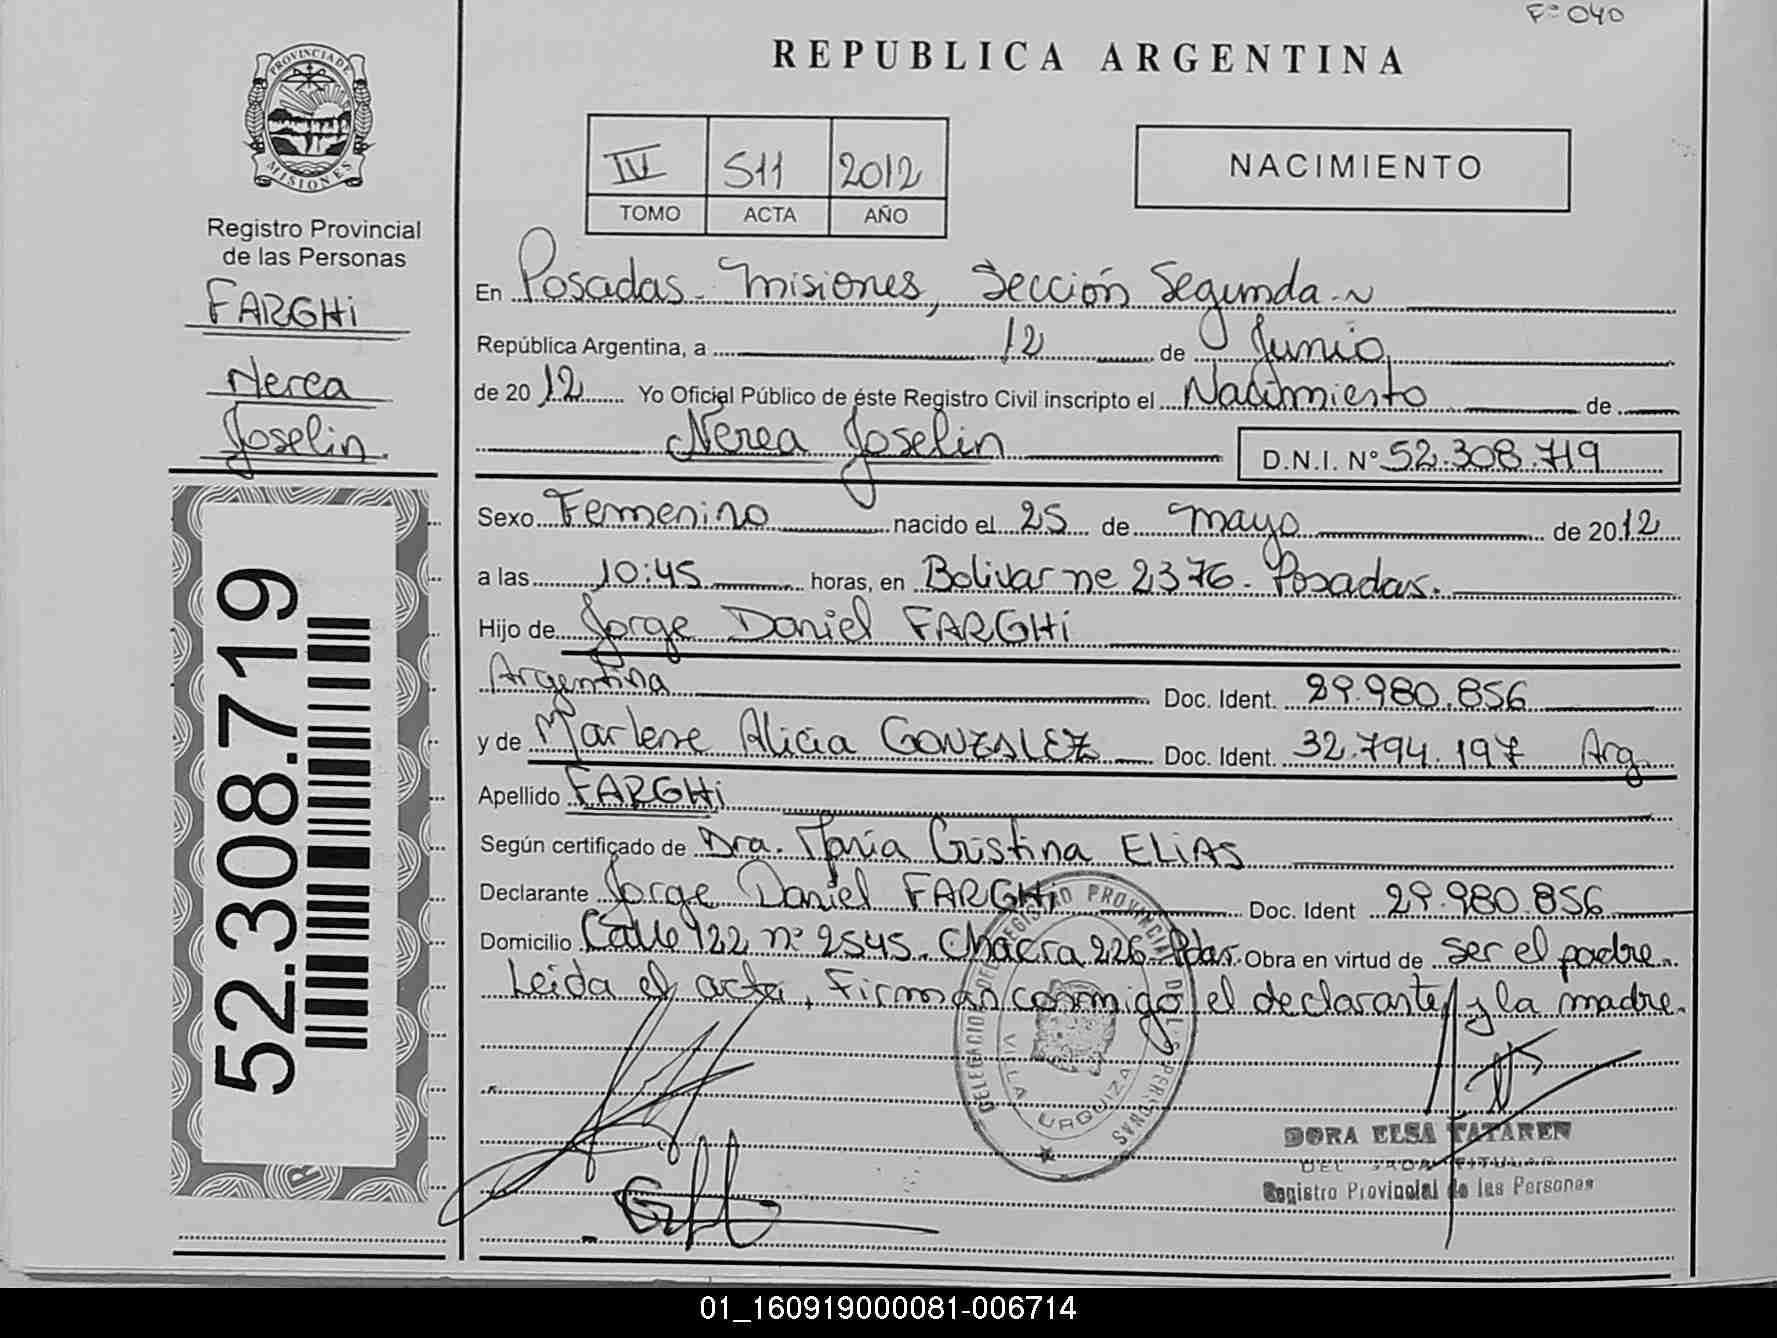 F° 040
PROVINCIA DE
MISIONES
Registro Provincial
de las Personas
FARGHi
Nerea
Joselin.
52.308.719
REPUBLICA ARGENTINA
IV 511 2012
TOMO ACTA AÑO
NACIMIENTO
En Posadas. Misiones, Sección Segunda.~
República Argentina, a 12 de Junio
de 2012 Yo Oficial Público de éste Registro Civil inscripto el Nacimiento de
Nerea Joselin D.N.I. N° 52.308.719
Sexo Femenino nacido el 25 de mayo de 2012
a las 10:45 horas, en Bolivar ne 2376. Posadas.
Hijo de Jorge Daniel FARGHi
Argentina Doc. Ident. 29.980.856
y de Marlene Alicia GONZALEZ Doc. Ident. 32.794.197 Arg.
Apellido FARGHi
Según certificado de Dra. María Cristina ELiAS
Declarante Jorge Daniel FARGHi Doc. Ident 29.980.856
Domicilio Calle 122 n° 2545. Chacra 226. Pdas. Obra en virtud de ser el padre.
Leida el acta, Firman conmigo el declarante y la madre.
VILLA URQUIZA
DORA ELSA TATAREN
Registro Provincial de las Personas
01_160919000081-006714